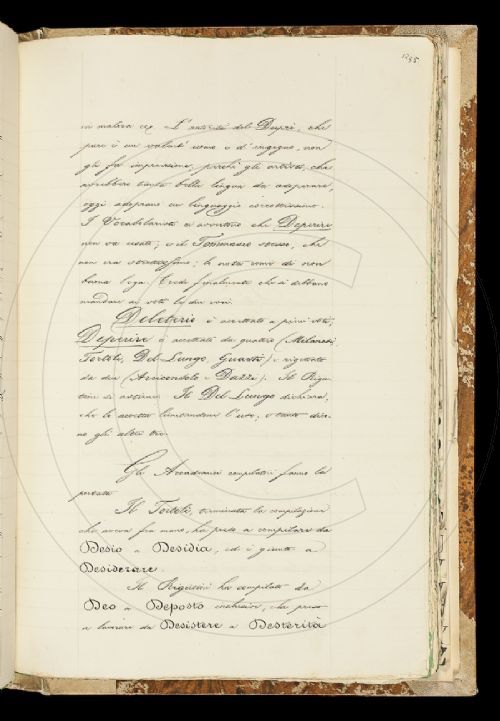 1235
in materia ec. L'autorità del Duprè, che
pure è un valent' uomo e d'ingegno, non
gli fa impressione, perchè gli artisti, che
avrebbero tanta bella lingua da adoperare,
oggi adoprano un linguaggio corrottissimo.
I Vocabolaristi ci avvertono che Deperire
non va usato; e il Tommaseo stesso, che
non era strettissimo, lo nota come di non
buona lega. Crede finalmente che si debbano
mandare ai voti le due voci.
Deleterio è accettato a pieni voti;
Deperire è accettato da quattro (Milanesi,
Tortoli, Del Lungo, Guasti) e rigettato
da due (Arnicendolo e Dazzi). Il Rigu-
tini si astiene. Il Del Lungo dichiara,
che lo accetta limitandone l'uso; e tanto dico-
no gli altri tre.
Gli Accademici compilatori fanno la
portata.
Il Tortoli, terminata la compilazione
che aveva fra mano, ha preso a compilare da
Desio a Desidia, ed è giunto a
Desiderare.
Il Rigutini ha compilato da
Deo a Deposto inclusive, e ha preso
a lavorare da Desistere a Desterità